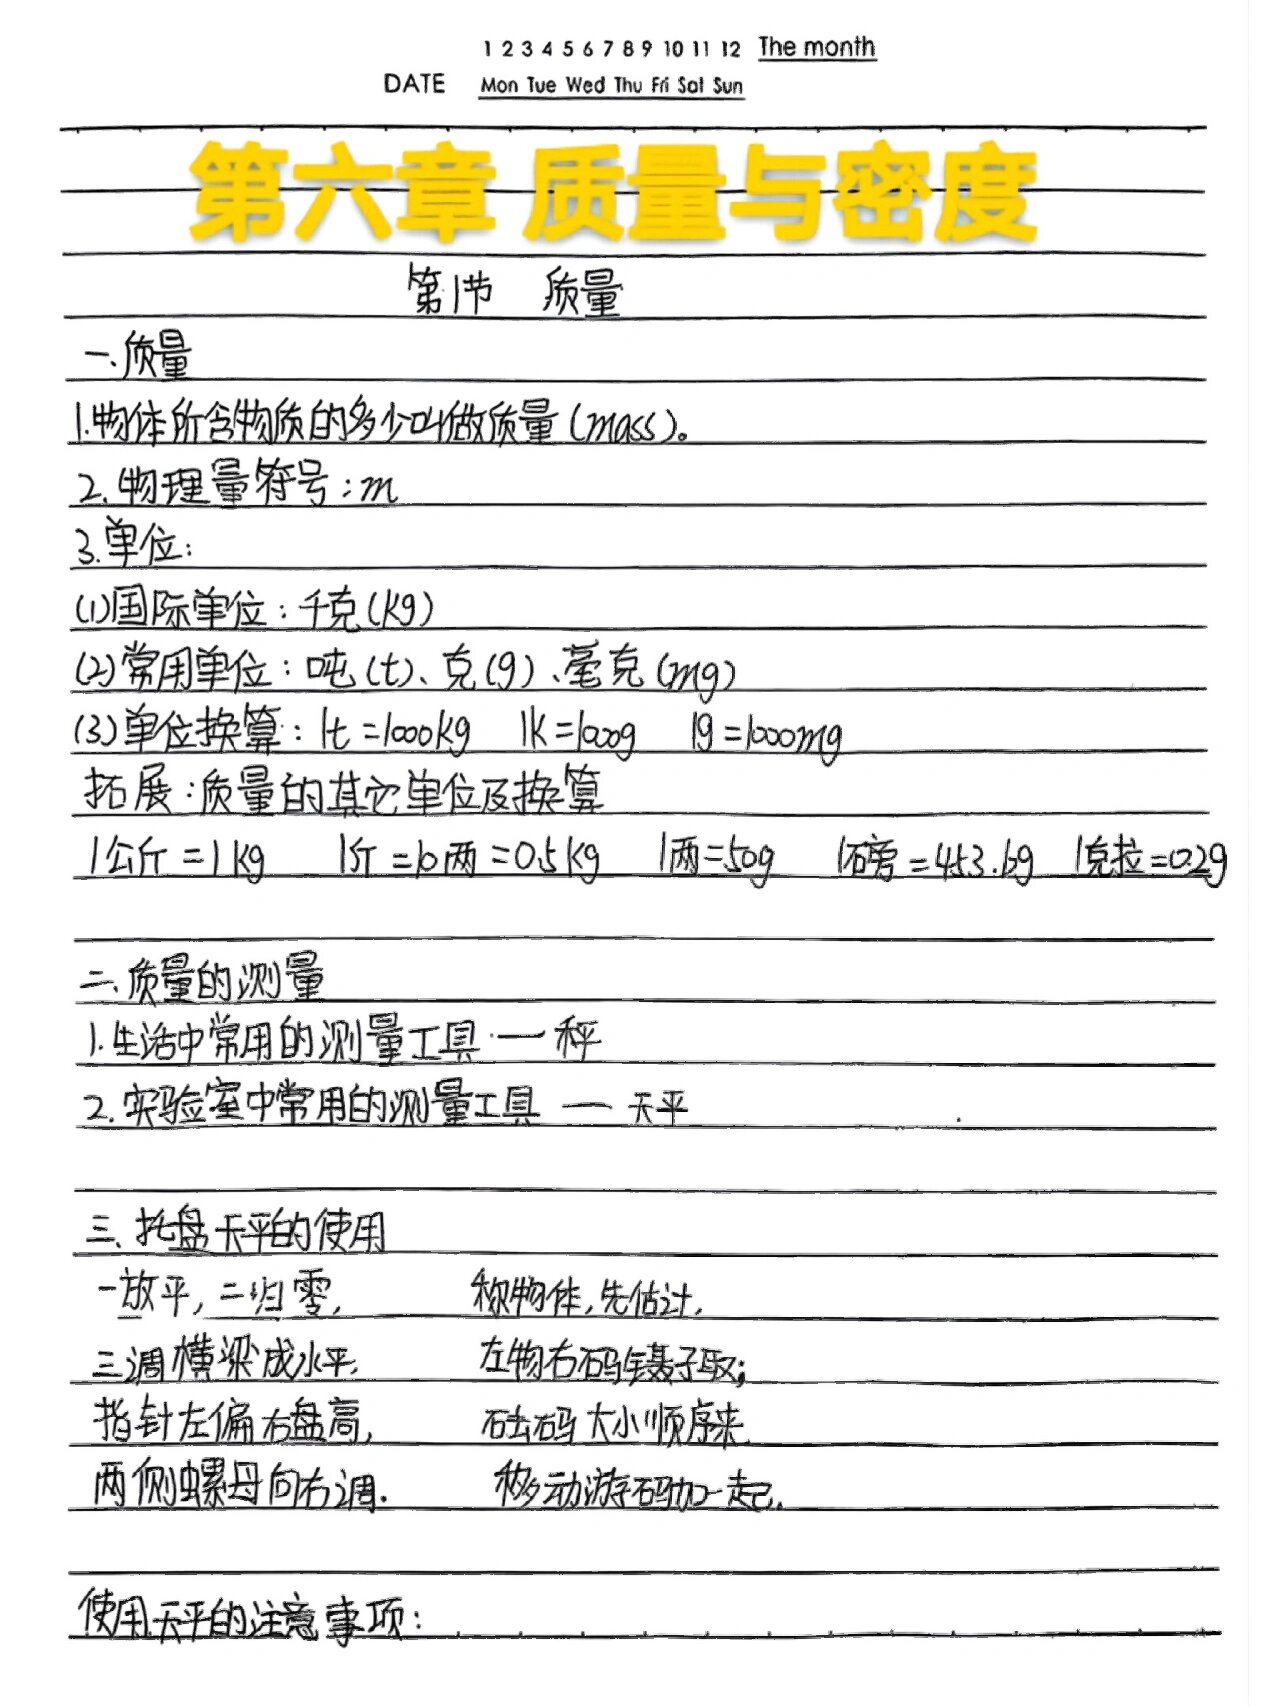 1 2 3 4 5 6 7 8 9 10 11 12 The month
DATE Mon Tue Wed Thu Fri Sat Sun
第六章 质量与密度
第1节 质量
一.质量
1.物体所含物质的多少叫做质量(mass)。
2.物理量符号:m
3.单位:
(1)国际单位:千克(kg)
(2)常用单位:吨(t)、克(g)、毫克(mg)
(3)单位换算:1t=1000kg 1k=1000g 1g=1000mg
拓展:质量的其它单位及换算
1公斤=1kg 1斤=10两=0.5kg 1两=50g 1磅=453.6g 1克拉=0.2g
二.质量的测量
1.生活中常用的测量工具一秤
2.实验室中常用的测量工具 一 天平
三、托盘天平的使用
一放平,二归零, 称物体,先估计,
三调横梁成水平. 左物右码镊子取;
指针左偏右盘高, 砝码大小顺序来
两侧螺母向右调. 移动游码加一起.
使用天平的注意事项: